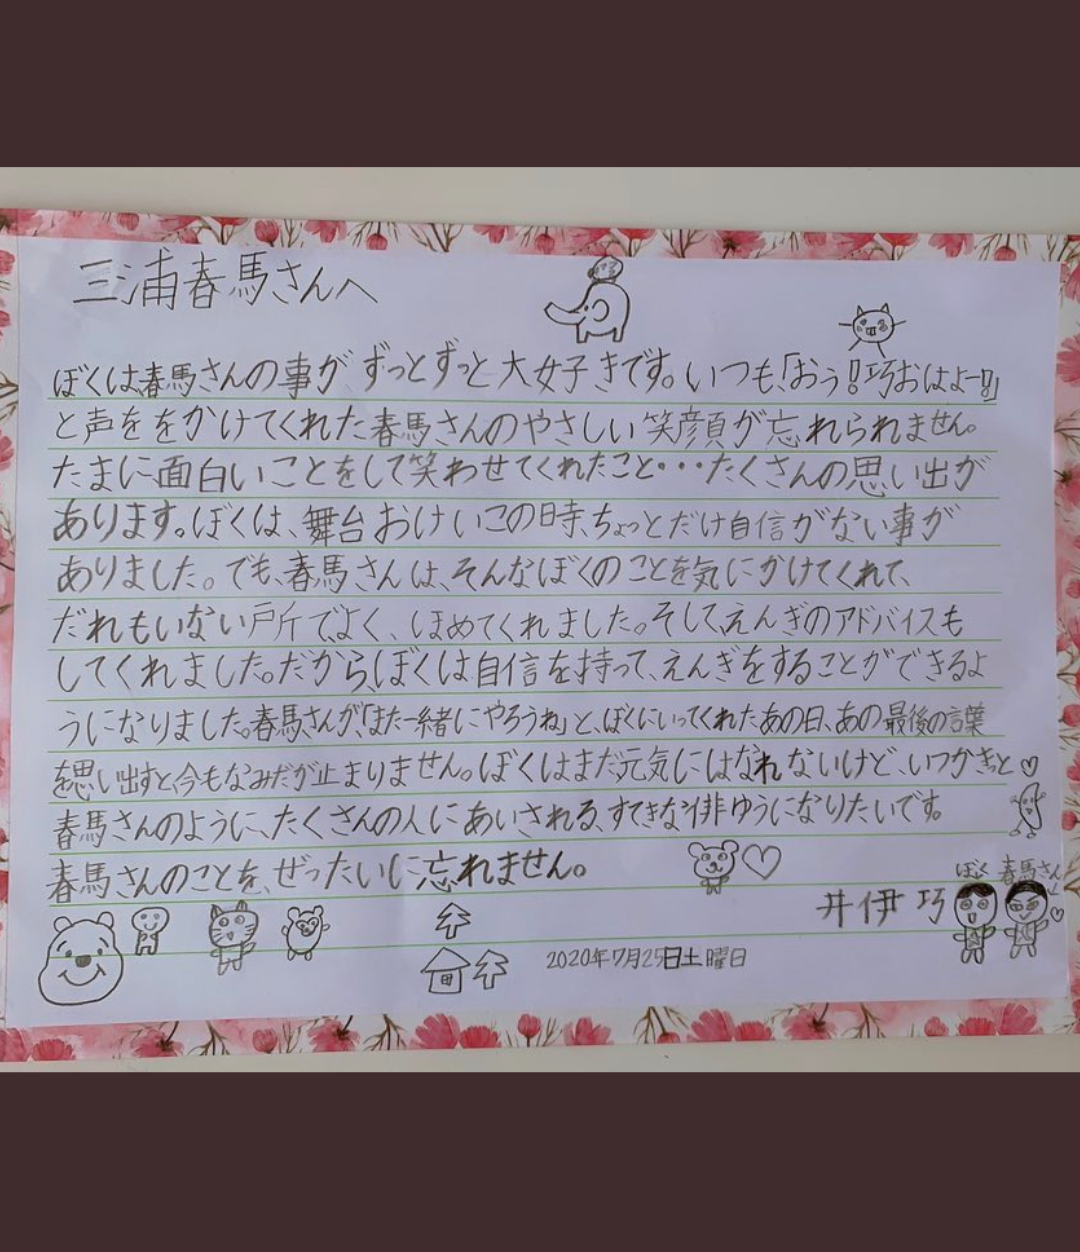 三浦春馬さんへ
ぼくは、春馬さんの事が ずっとずっと大好きです。いつも、「おぅ!!巧おはよー!!」
と声ををかけてくれた春馬さんのやさしい笑顔が忘れられません。
たまに面白いことをして笑わせてくれたこと・・・たくさんの思い出が
あります。ぼくは、舞台おけいこの時、ちょっとだけ自信がない事が
ありました。でも、春馬さんは、そんなぼくのことを気にかけてくれて、
だれもいない戸斤でよく、ほめてくれました。そして、えんぎのアドバイスも
してくれました。だから、ぼくは自信を持って、えんぎをすることができるよ
うになりました。春馬さんが、「また一緒にやろうね」と、ぼくにいってくれたあの日、あの最後の言葉
を思い出すと、今もなみだが止まりません。ぼくはまだ元気にはなれないけど、いつかきっと♡
春馬さんのように、たくさんの人にあいされる、すてきな俳ゆうになりたいです。
春馬さんのことを、ぜったいに忘れません。
ぼく 春馬さん
井伊 巧
2020年7月25日土曜日